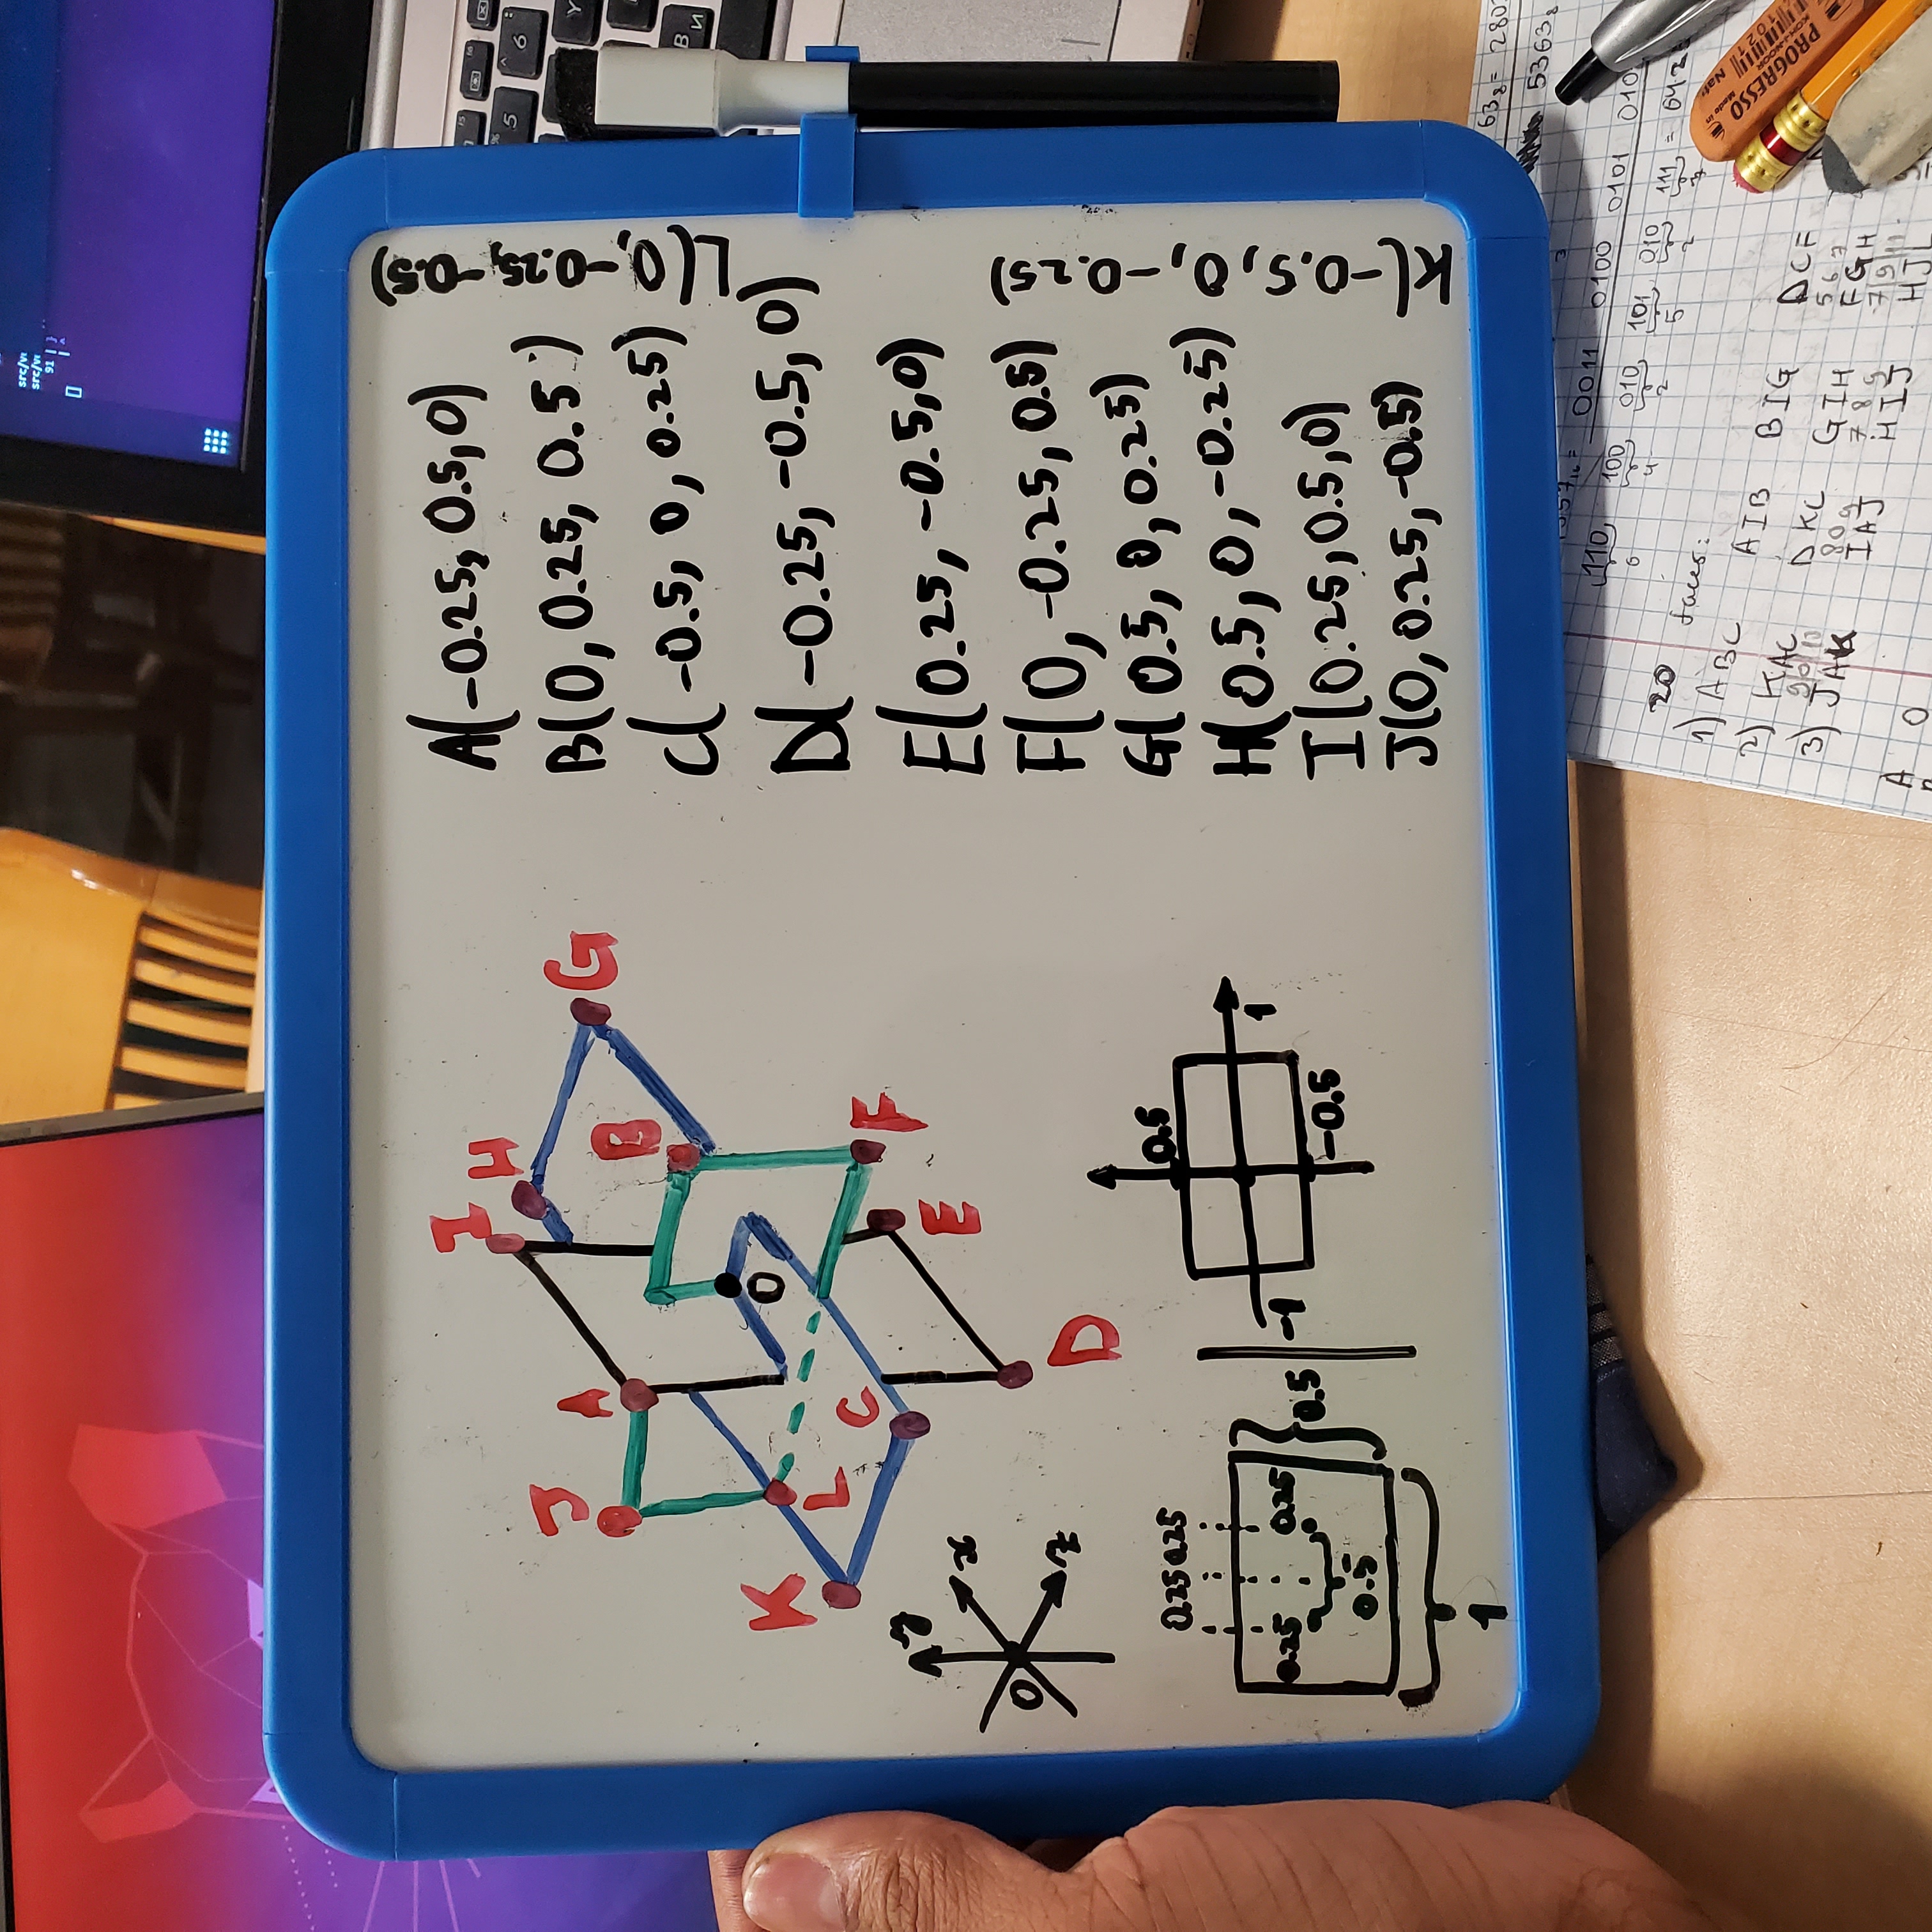 A(-0.25, 0.5, 0)
B(0, 0.25, 0.5)
C(-0.5, 0, 0.25)
D(-0.25, -0.5, 0)
E(0.25, -0.5, 0)
F(0, -0.25, 0.5)
G(0.5, 0, 0.25)
H(0.5, 0, -0.25)
I(0.25, 0.5, 0)
J(0, 0.25, -0.5)
K(-0.5, 0, -0.25)
L(0, -0.25, -0.5)
I
H
G
J
A
B
K
L
C
O
F
E
D
y
x
z
O
0.25 0.25
0.25
0.25
0.5
0.5
1
0.5
-1
1
-0.5
20
faces:
1) ABC AIB BIG
2) KAC DKC GIH DCF
3) JAK IAJ HIJ FGH
0011 0100 0101
110 100 010 101 010 111
6 4 2 5 2 7
PROGRESSO
KOH-I-NOOR
Made in
5
6
В
И
Y
src/v
src/v
91